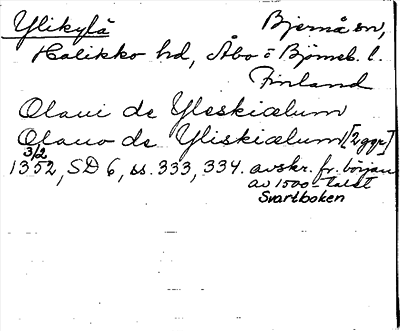 Ylikylä Bjernå sn,
Halikko hd, Åbo o Björneb. l.
Finland
Olaui de Yleskiælum
Olauo de Yliskiælum [2 ggr]
3/2
1352, SD 6, ss. 333, 334. avskr. fr. början
av 1500-talet
Svartboken